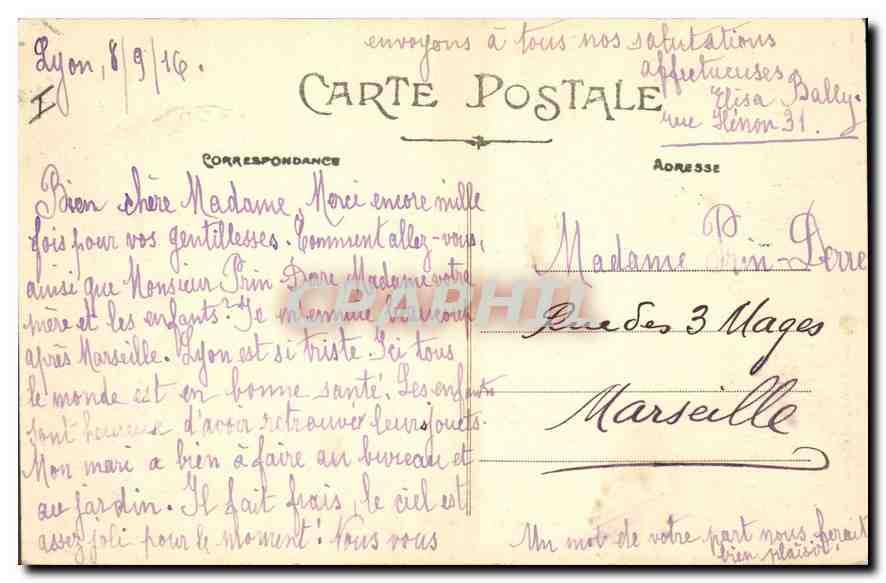 Lyon, 8/9/16.
I
envoyons à tous nos salutations
affectueuses
Elisa Bally.
rue Hénon 31.
CARTE POSTALE
CORRESPONDANCE
ADRESSE
Bien chère Madame, Merci encore mille
fois pour vos gentillesses. Comment allez-vous,
ainsi que Monsieur Prin-Derre, Madame votre
mère et les enfants? Je m'ennuie beaucoup
après Marseille. Lyon est si triste. Ici tous
le monde est en bonne santé. Les enfants
sont heureux d'avoir retrouver leurs jouets.
Mon mari a bien à faire au bureau et
au jardin. Il fait frais, le ciel est
assez joli pour le moment! Nous vous
Madame Prin-Derre
Rue des 3 Mages
Marseille
Un mot de votre part nous ferait
bien plaisir.
CPAPHIL